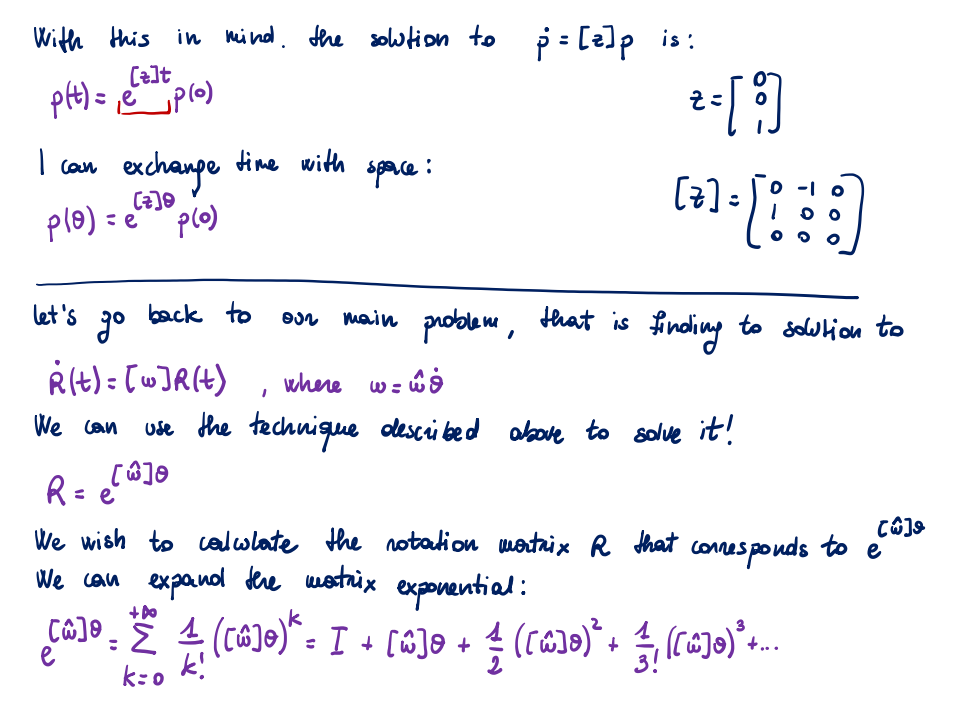 With this in mind. the solution to ṗ = [z]p is:
p(t) = e^{[z]t} p(0)
z = [0 0 1]
I can exchange time with space:
p(θ) = e^{[z]θ} p(0)
[z] = [0 -1 0
1 0 0
0 0 0]
let's go back to our main problem, that is finding to solution to
Ṙ(t) = [ω]R(t) , where ω = ω̂θ̇
We can use the technique described above to solve it!
R = e^{[ω̂]θ}
We wish to calculate the rotation matrix R that corresponds to e^{[ω̂]θ}
We can expand the matrix exponential:
e^{[ω̂]θ} = ∑_{k=0}^{+∞} 1/k! ([ω̂]θ)^k = I + [ω̂]θ + 1/2 ([ω̂]θ)^2 + 1/3! ([ω̂]θ)^3 + ...